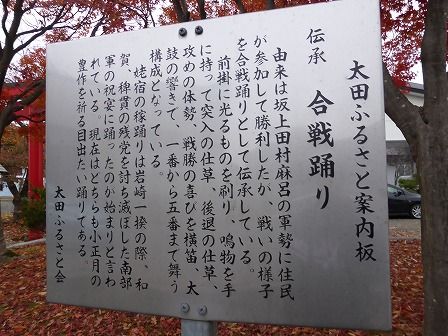 太田ふるさと案内板
伝承 合戦踊り
由来は坂上田村麻呂の軍勢に住民
が参加して勝利したが、戦いの様子
を合戦踊りとして伝承している。
前掛に光るものを刷り、鳴物を手
に持って突入の仕草、後退の仕草、
攻めの体勢、戦勝の喜びを横笛、大
鼓の響きて、一番から五番まて舞う
構成となっている。
姥宿の稼踊りは岩崎一揆の際、和
賀、稗貫の残党を討ち滅ぼした南部
軍の祝宴に踊ったのが始まりと言わ
れている。現在はどちらも小正月の
豊作を祈る目出たい踊りてある。
太田ふるさと会